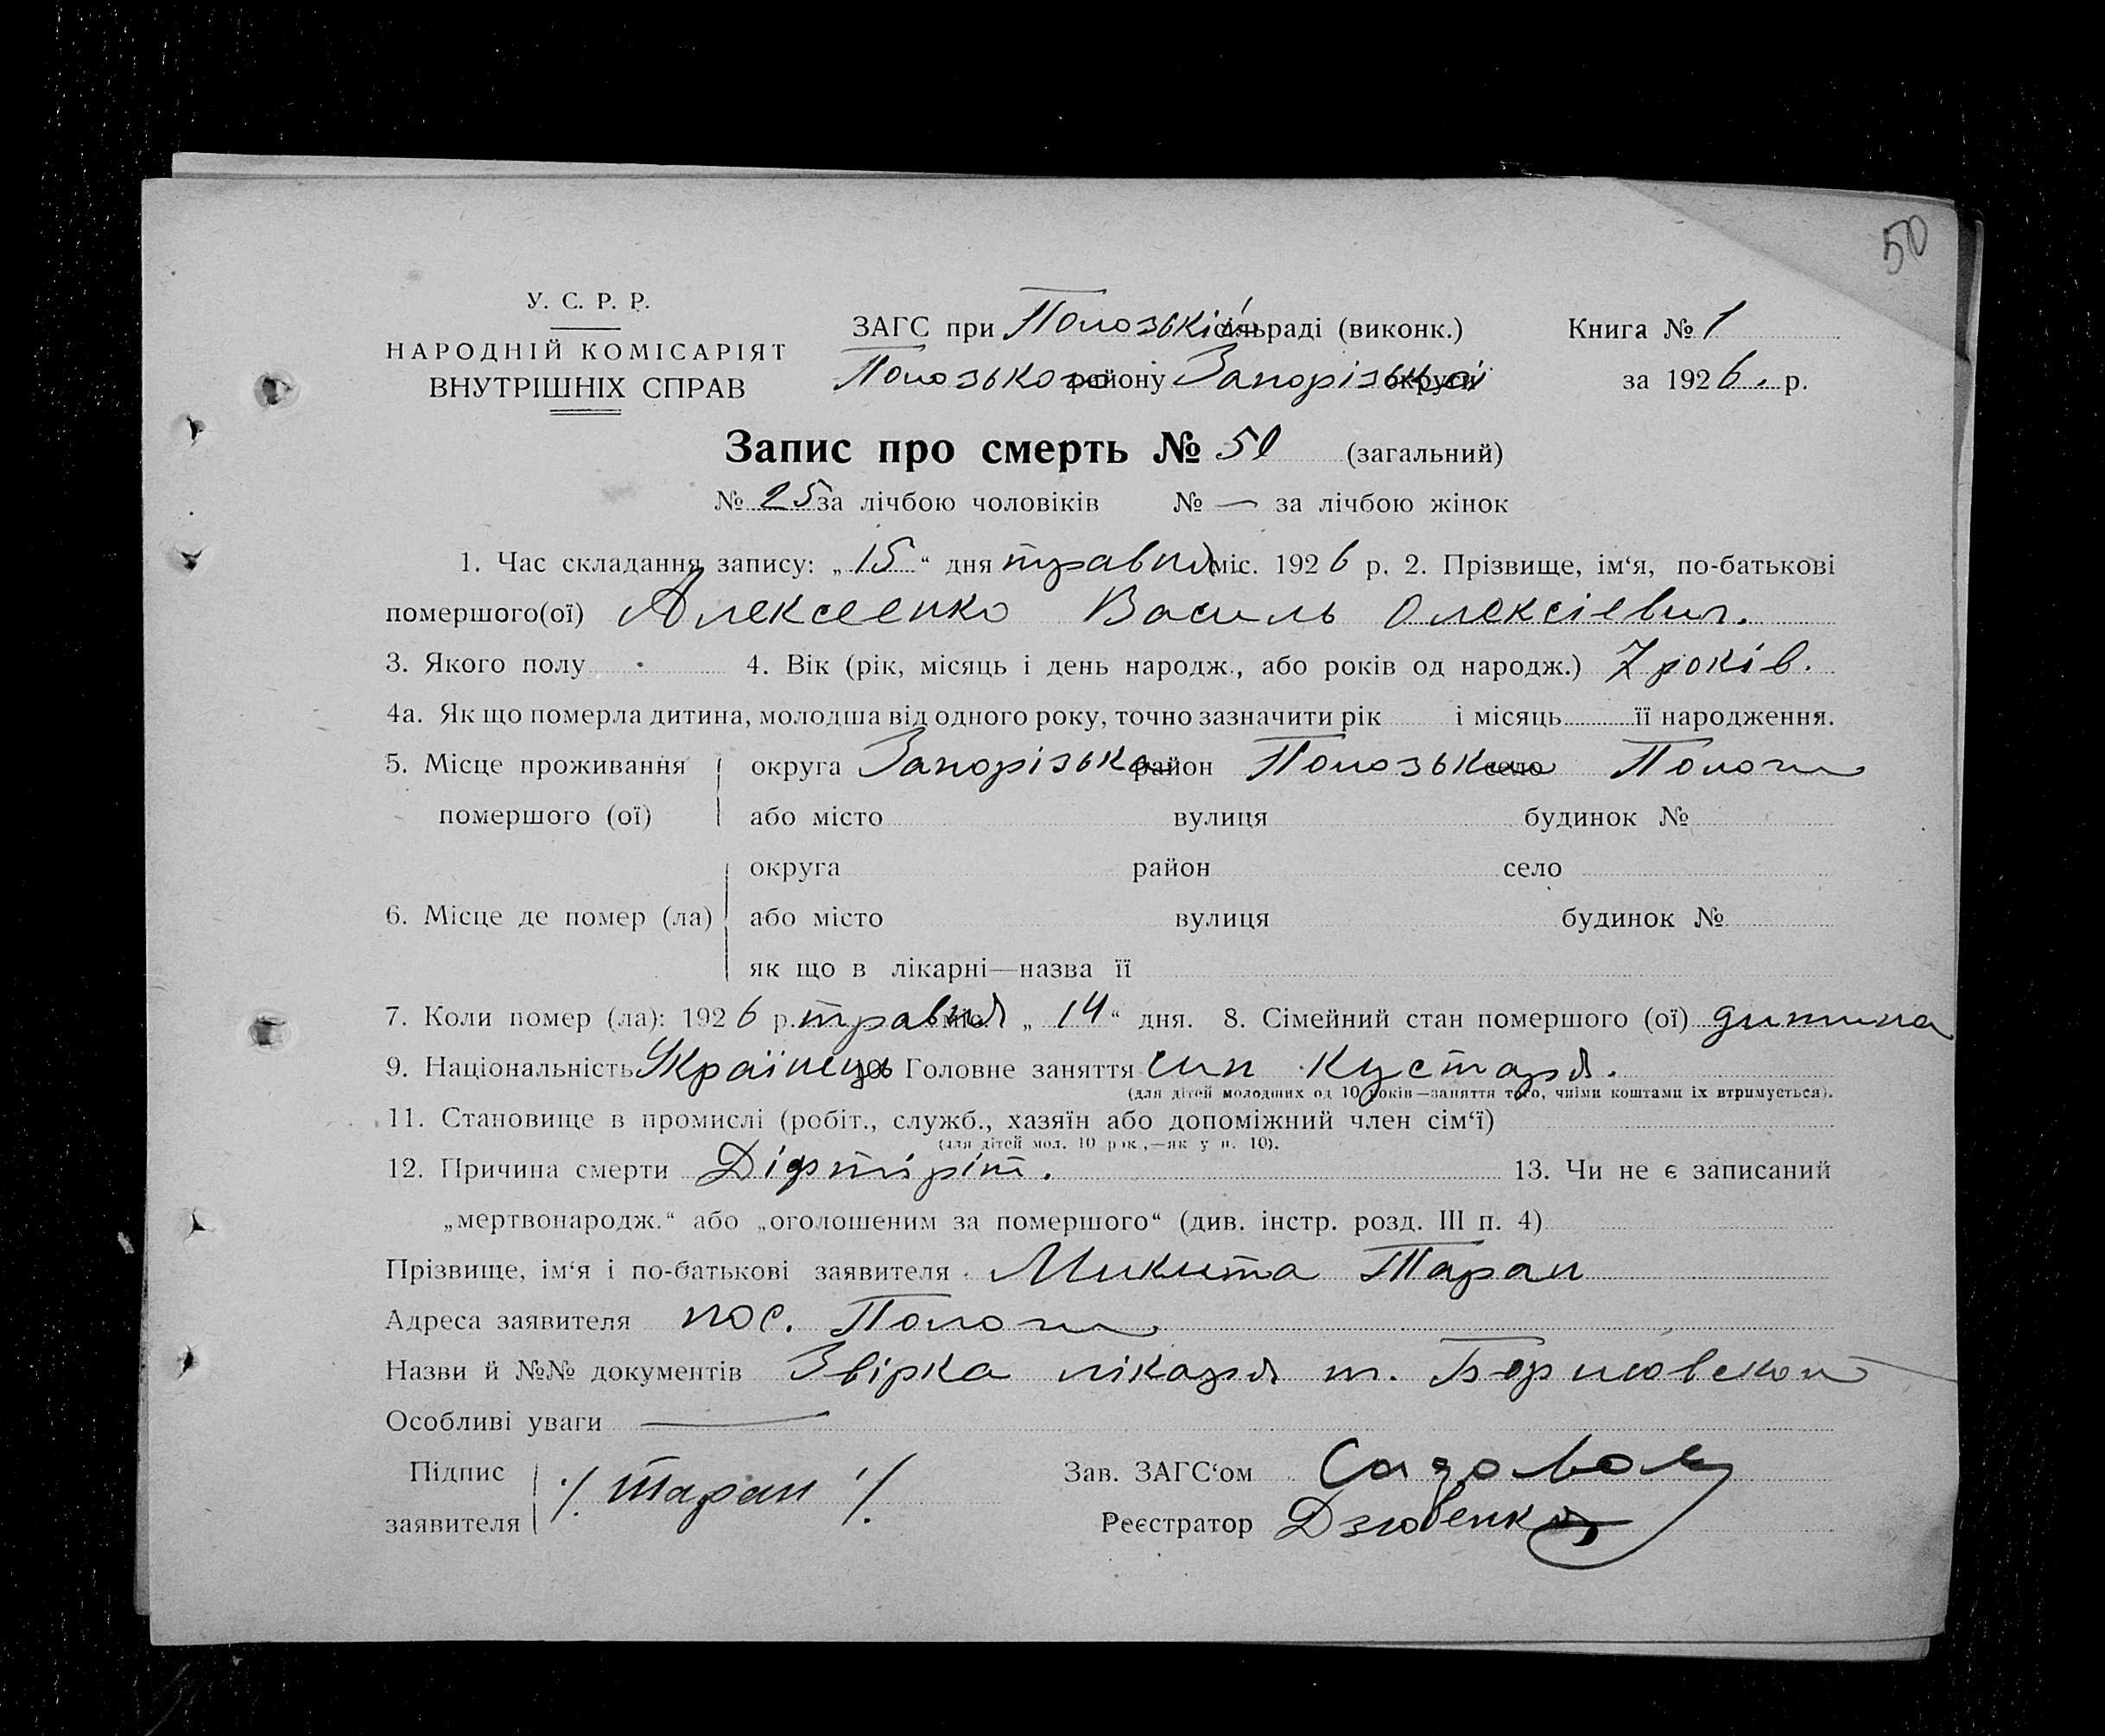 50
У. С. Р. Р.
НАРОДНІЙ КОМІСАРІЯТ
ВНУТРІШНІХ СПРАВ
ЗАГС при Пологській сільраді (виконк.)
Пологського району Запорізької округи
Книга № 1
за 1926. р.
Запис про смерть № 50 (загальний)
№ 25 за лічбою чоловіків № — за лічбою жінок
1. Час складання запису: „15“ дня травня міс. 1926 р. 2. Прізвище, ім‘я, по-батькові
помершого(ої) Алексеенко Василь Олексієвич.
3. Якого полу 4. Вік (рік, місяць і день народж., або років од народж.) 7 років.
4а. Як що померла дитина, молодша від одного року, точно зазначити рік і місяць її народження.
5. Місце проживання округа Запорізька район Пологськ село Пологи
помершого (ої) або місто вулиця будинок №
округа район село
6. Місце де помер (ла) або місто вулиця будинок №
як що в лікарні—назва її
7. Коли помер (ла): 1926 р. травня міс. „14“ дня. 8. Сімейний стан помершого (ої) дитина
9. Національність Українець 10. Головне заняття син кустаря.
(для дітей молодших од 10 років—заняття того, чиїми коштами їх втримується).
11. Становище в промислі (робіт., служб., хазяїн або допоміжний член сім‘ї)
(для дітей мол. 10 рок.,—як у п. 10).
12. Причина смерти Діфтіріт. 13. Чи не є записаний
„мертвонародж.“ або „оголошеним за помершого“ (див. інстр. розд. III п. 4)
Прізвище, ім‘я і по-батькові заявителя Микита Таран
Адреса заявителя пос. Пологи
Назви й №№ документів лікаря т.
Особливі уваги —
Підпис заявителя ./ Таран ./
Зав. ЗАГС‘ом
Реєстратор Дзювенко